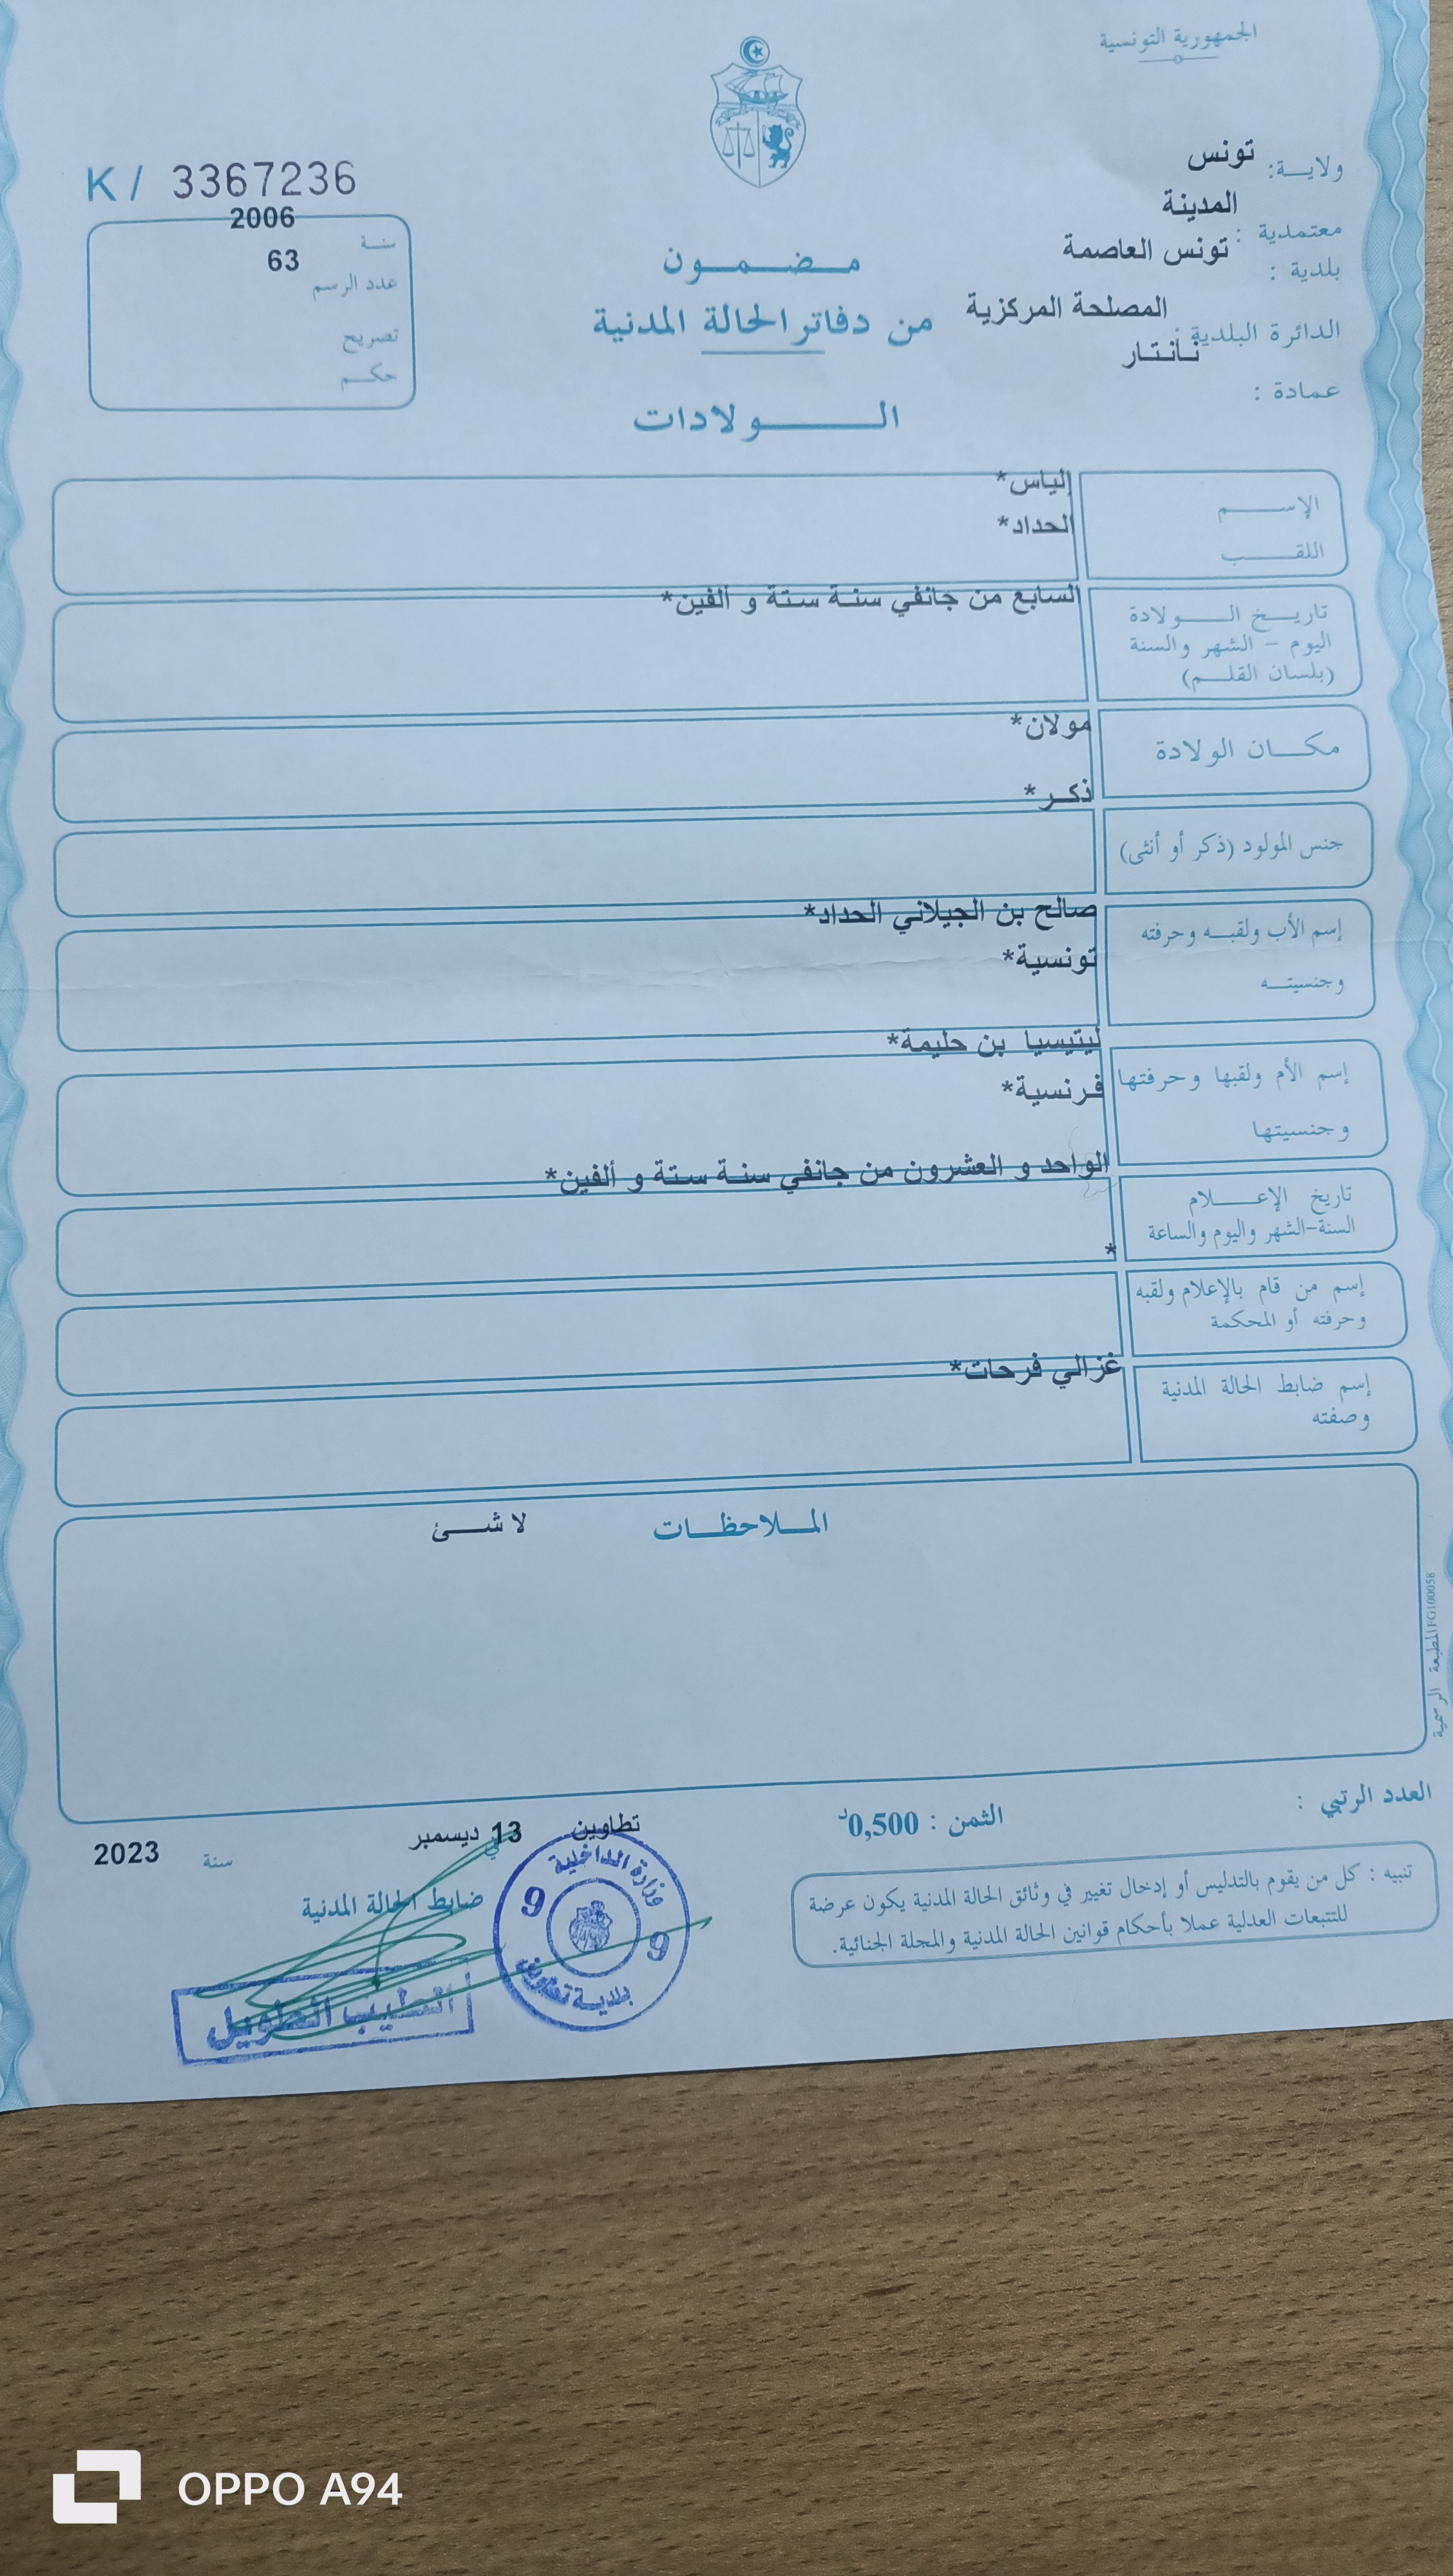 الجمهورية التونسية
ولايـــة: تونس
معتمدية : المدينة
بلدية : تونس العاصمة
الدائرة البلدية : المصلحة المركزية
نـانـتـار
عمادة :
K / 3367236
سنـة 2006
عدد الرسم 63
تصريح
حكـم
مـضـمـون
من دفاتر الحالة المدنية
الـولادات
الإســـم إلياس*
اللقـــب الحداد*
تاريـخ الـــولادة السابع من جانفي سنـة ستة و ألفين*
اليوم - الشهر والسنة
(بلسان القلـم)
مكـــان الولادة مولان*
ذكـر*
جنس المولود (ذكر أو أنثى)
إسم الأب ولقبـه وحرفته صالح بن الجيلاني الحداد*
وجنسيتـه تونسية*
إسم الأم ولقبها وحرفتها ليتيسيا بن حليمة*
وجنسيتها فـرنسية*
تاريخ الإعــلام الواحد و العشرون من جانفي سنـة ستة و ألفين*
السنة-الشهر واليوم والساعة
*
إسم من قام بالإعلام ولقبه
وحرفته أو المحكمة
إسم ضابط الحالة المدنية غزالي فرحات*
وصفته
المـلاحظـات لا شـئ
المطبعة الرسمية FG100058
العدد الرتبي :
الثمن : 0,500د
تطاوين في 13 ديسمبر سنة 2023
ضابط الحالة المدنية
تنبيه : كل من يقوم بالتدليس أو إدخال تغيير في وثائق الحالة المدنية يكون عرضة
للتتبعات العدلية عملا بأحكام قوانين الحالة المدنية والمجلة الجنائية.
وزارة الداخلية
9 9
بلدية تطاوين
الطيب الطويل
OPPO A94